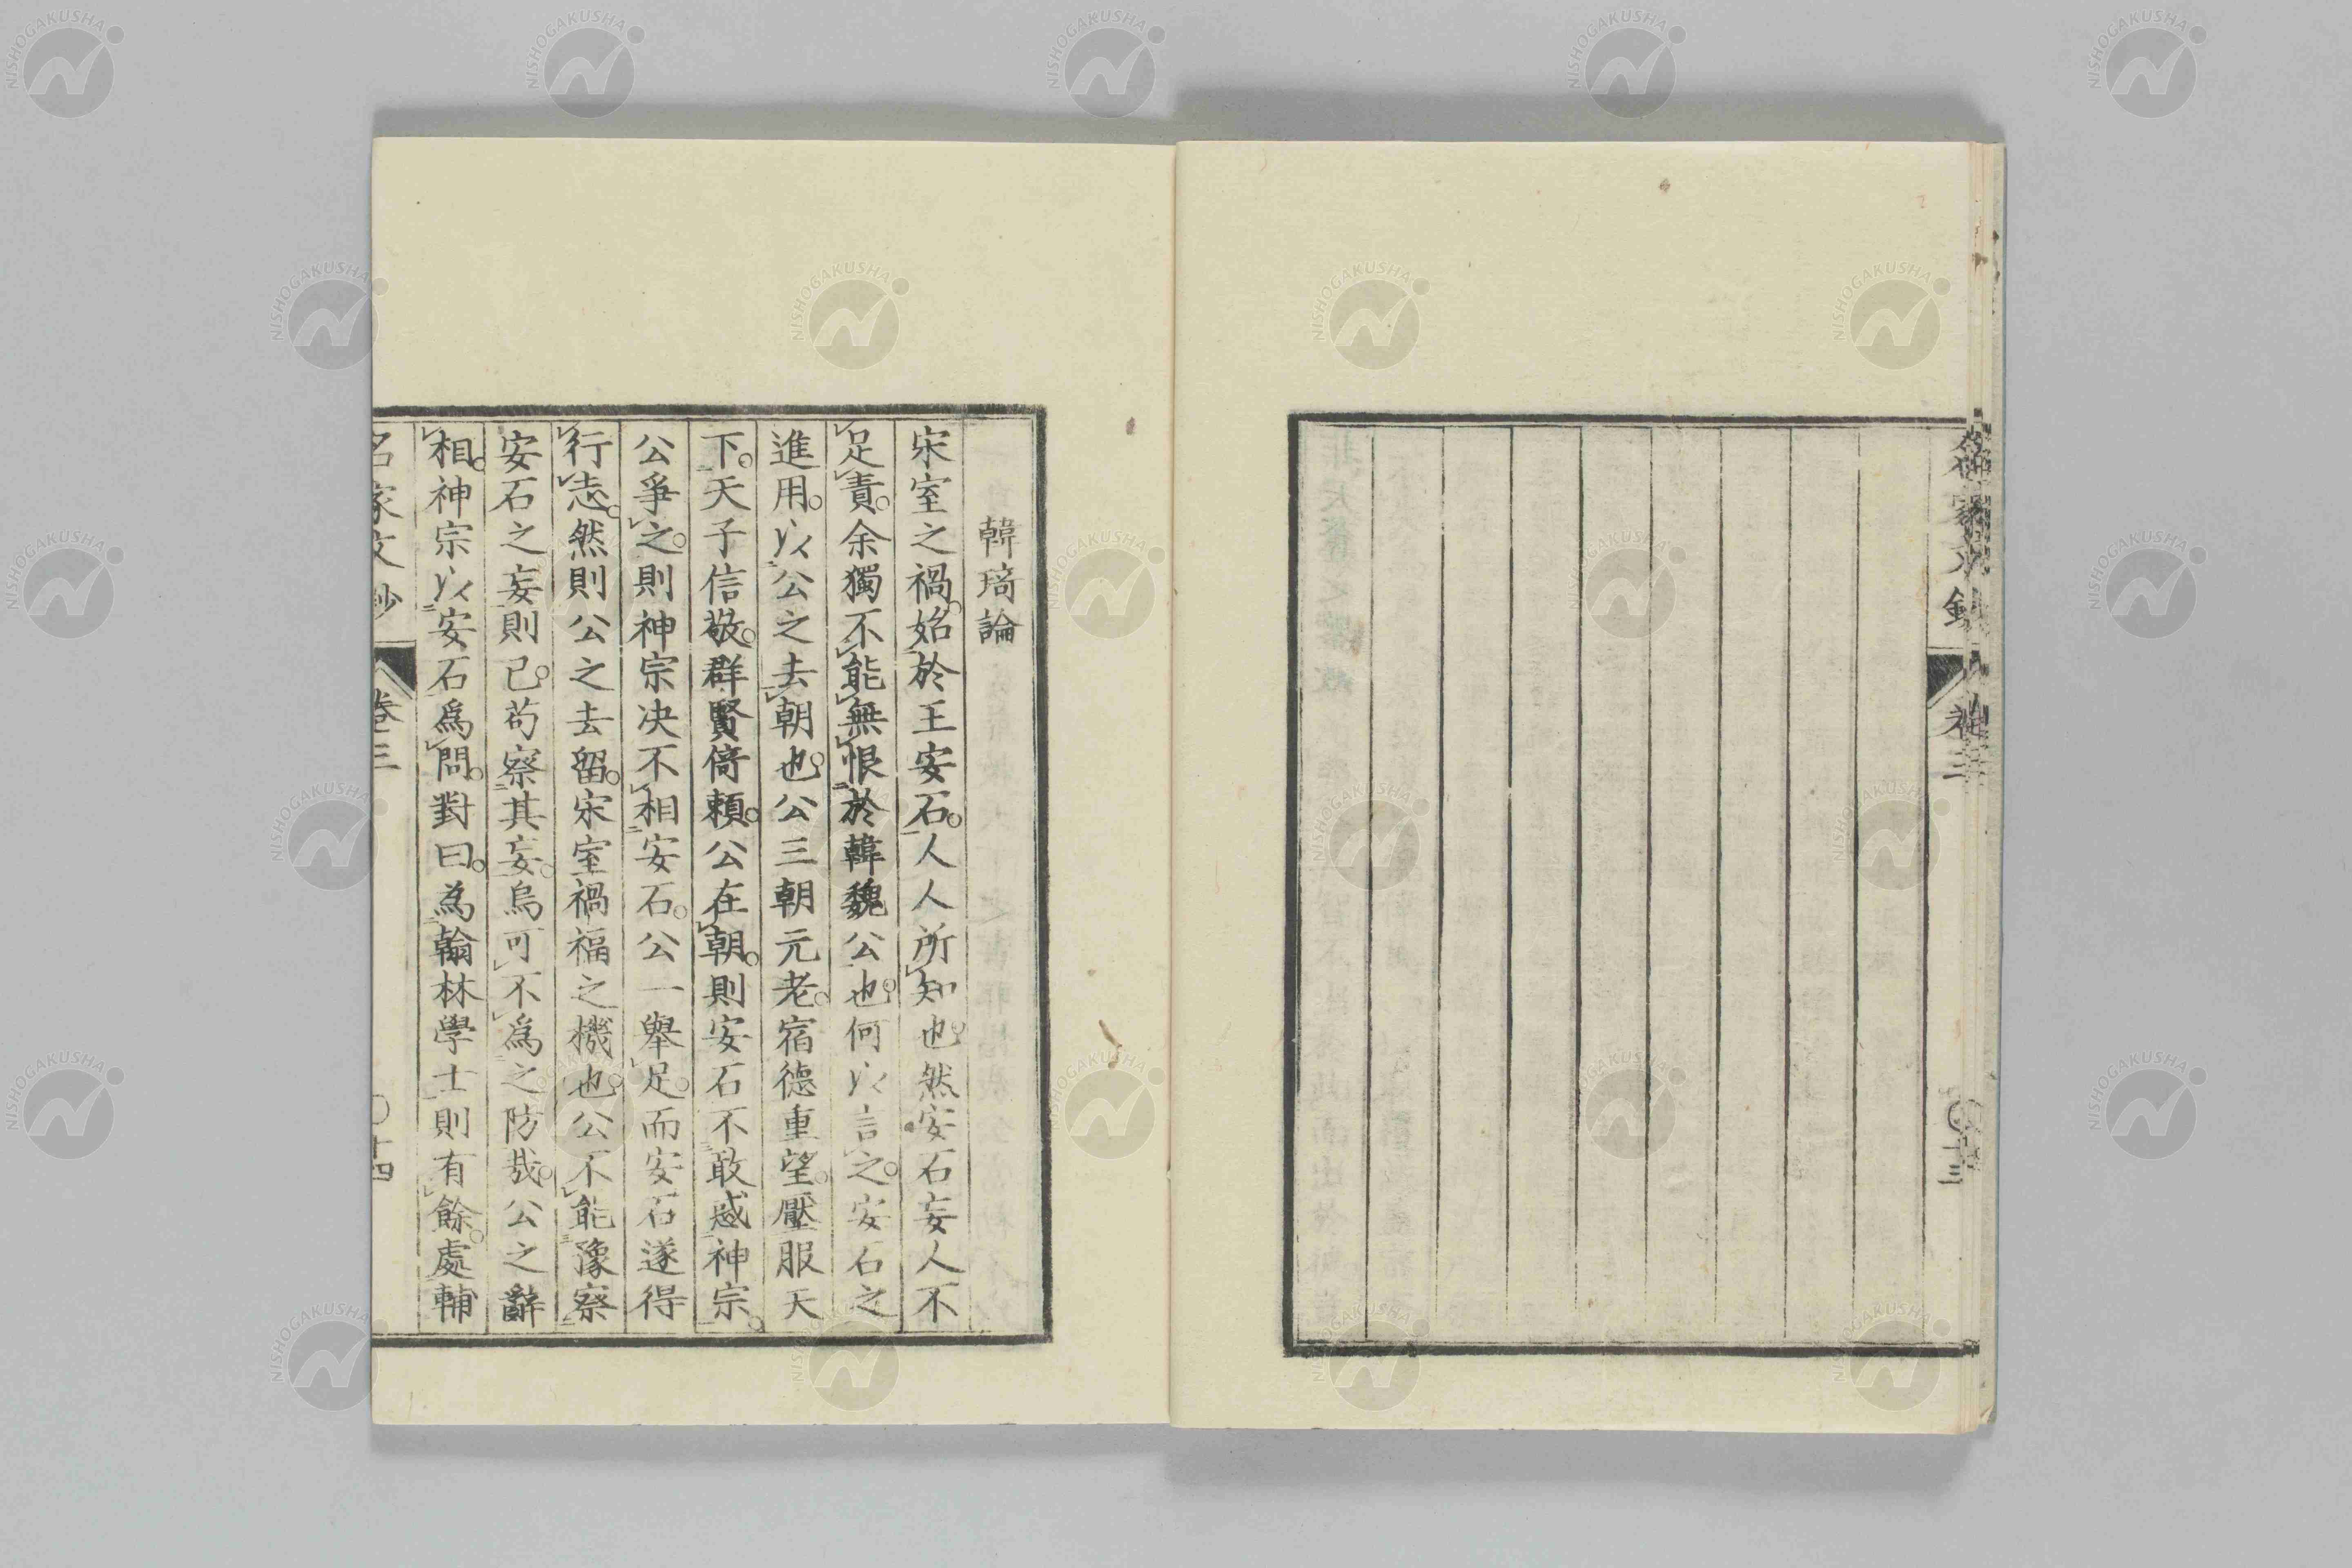 韓琦論
宋室之禍。始於王安石。人人所知也。然安石妄人不
足責。余獨不能無恨於韓魏公也。何以言之。安石之
進用。以公之去朝也。公三朝元老。宿德重望。壓服天
下。天子信敬。群賢倚頼。公在朝。則安石不敢惑神宗。
公爭之。則神宗决不相安石。公一舉足。而安石遂得
行志。然則公之去留。宋室禍福之機也。公不能豫察
安石之妄則已。苟察其妄。烏可不爲之防哉。公之辭
相。神宗以安石爲問。對曰。為翰林學士則有餘。處輔
名家文鈔
卷三
〇十四